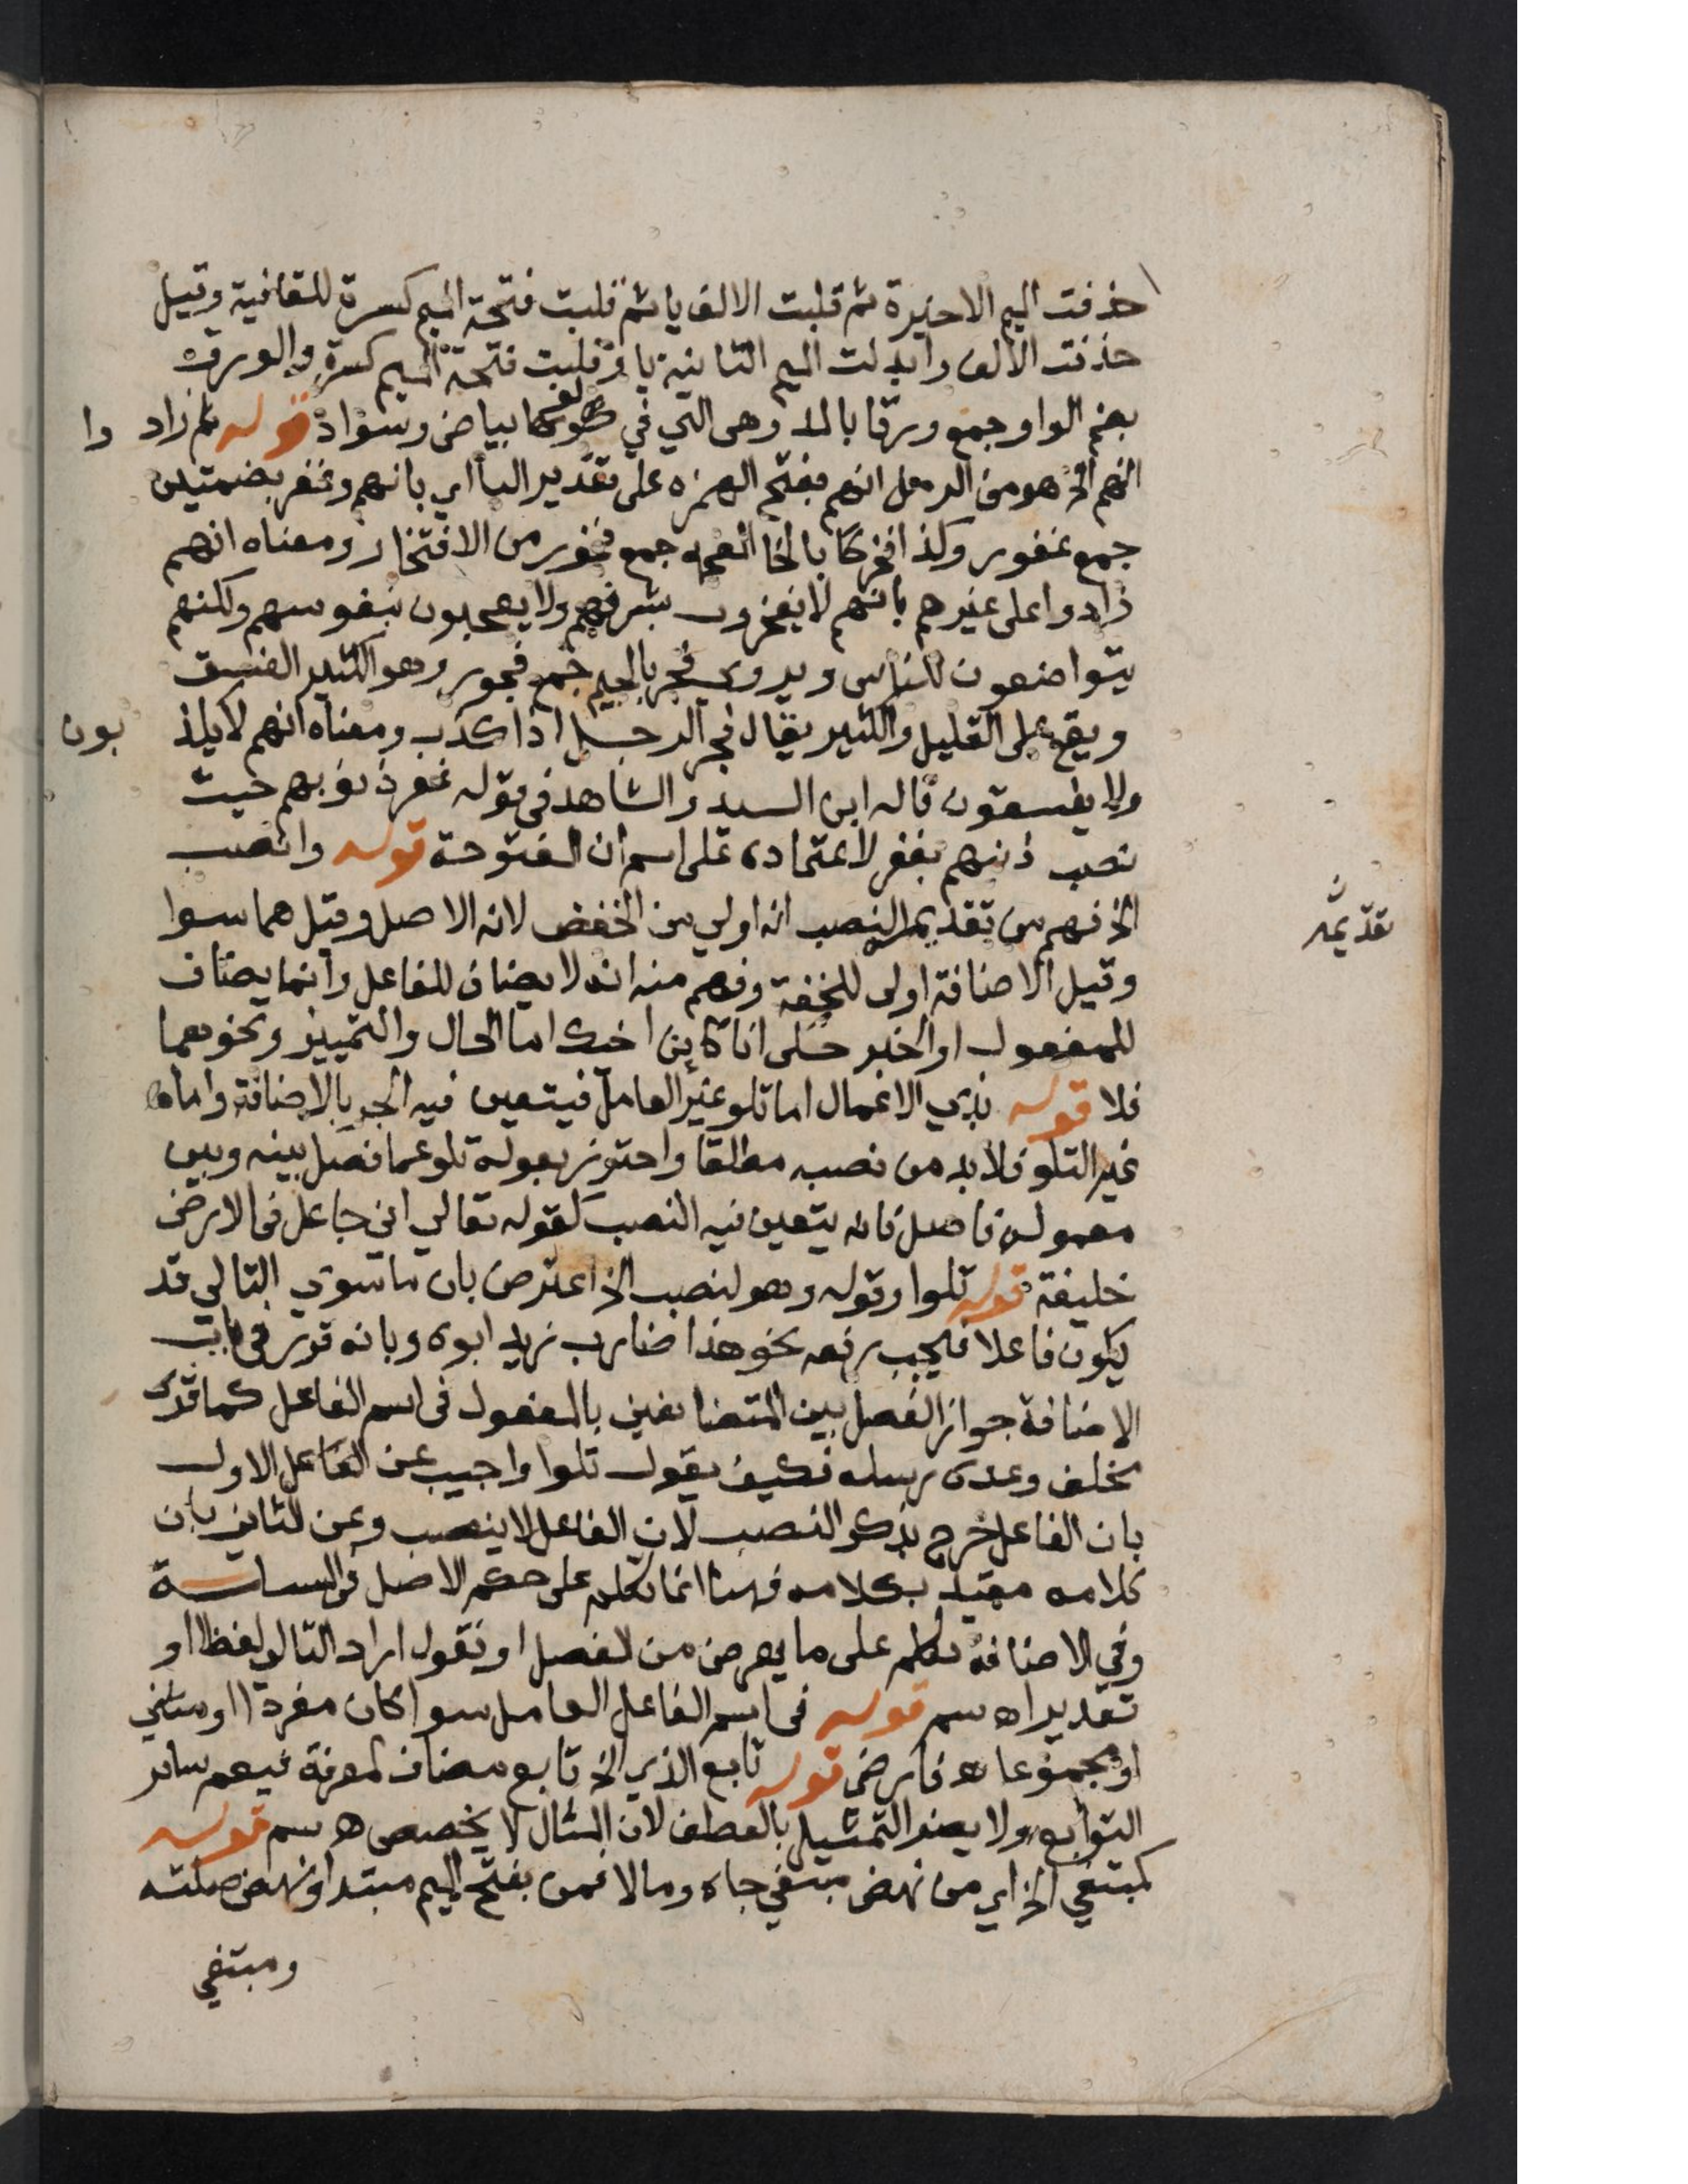 حذفت الميم الاخيرة ثم قلبت الالف يا ثم قلبت فتحة الميم كسرة للقافية وقيل
حذفت الالف وابدلت الميم الثانية يا وقلبت فتحة الميم كسرة والورق
بضم الواو جمع ورقا بالمد وهى التي في بياض وسواد قوله ثم زاد وا
انهم الخ هو من الرمل انهم بفتح الهمزه على تقدير البا اي بانهم وغفر بضمتين
جمع غفور وكذا فخر بالخا المعجمه جمع فخور من الافتخار ومعناه انهم
زادوا على غيرهم بانهم لا يفخرون بشرفهم ولا يعجبون بنفوسهم ولكنهم
يتواضعون للناس ويروى فجر بالجيم جمع فجور وهو الكثير الفسق
ويقع على القليل والكثير يقال فجر الرجل اذا كذب ومعناه انهم لا يكذ بون
ولا يفسقون قاله ابن السيد والشاهد في قوله غفر ذنوبهم حيث
نصب ذنبهم بغفر لاعتماده على اسم ان المفتوحة قوله وانصب
الخ فهم من تقديم النصب انه اولي من الخفض لانه الاصل وقيل هما سوا
تقديمه
وقيل الاضافة اولى للخفة وفهم منه انه لا يضاف للفاعل وانما يضاف
للمفعول او الخبر انا كاين اخك اما الحال والتمييز ونحوهما
فلا قوله بذي الاعمال اما تلو غير العامل فيتعين فيه الجر بالاضافة واما
غير التلو فلابد من نصبه مطلقا واحترز بقوله تلو عما فصل بينه وبين
معموله فاصل فانه يتعين فيه النصب كقوله تعالي اني جاعل في الارض
خليفة قوله تلوا وقوله وهو لنصب الخ اعترض بان ما سوي التالي قد
يكون فاعلا فيجب رفعه نحو هذا ضارب زيد ابوه وبانه قرر في باب
الاضافة جواز الفصل بين المتضايفين بالمفعول في اسم الفاعل كما قدك
مخلف وعده رسله فكيف يقول تلوا واجيب عن الاول
بان الفاعل خرج بذكر النصب لان الفاعل لا ينصب وعن الثاني بان
كلامه مقيد بكلامه فهنا انما تكلم على حكم الاصل في
وفي الاضافة تكلم على ما يعرض من الفصل او نقول اراد التالي لفظا او
تقديرا اه سم قوله في اسم الفاعل العامل سوا كان مفردا او مثني
او مجموعا اه فارضي قوله تابع الذي الخ تابع مضاف لمعرفة فيعم ساير
التوابع ولا يضر التمثيل بالعطف لان المثال لا يخصص اه سم قوله
كمبتغي الخ اي من نهض مبتغي جاه ومالا فمن بفتح الميم مبتدا ونهض صلته
ومبتغي